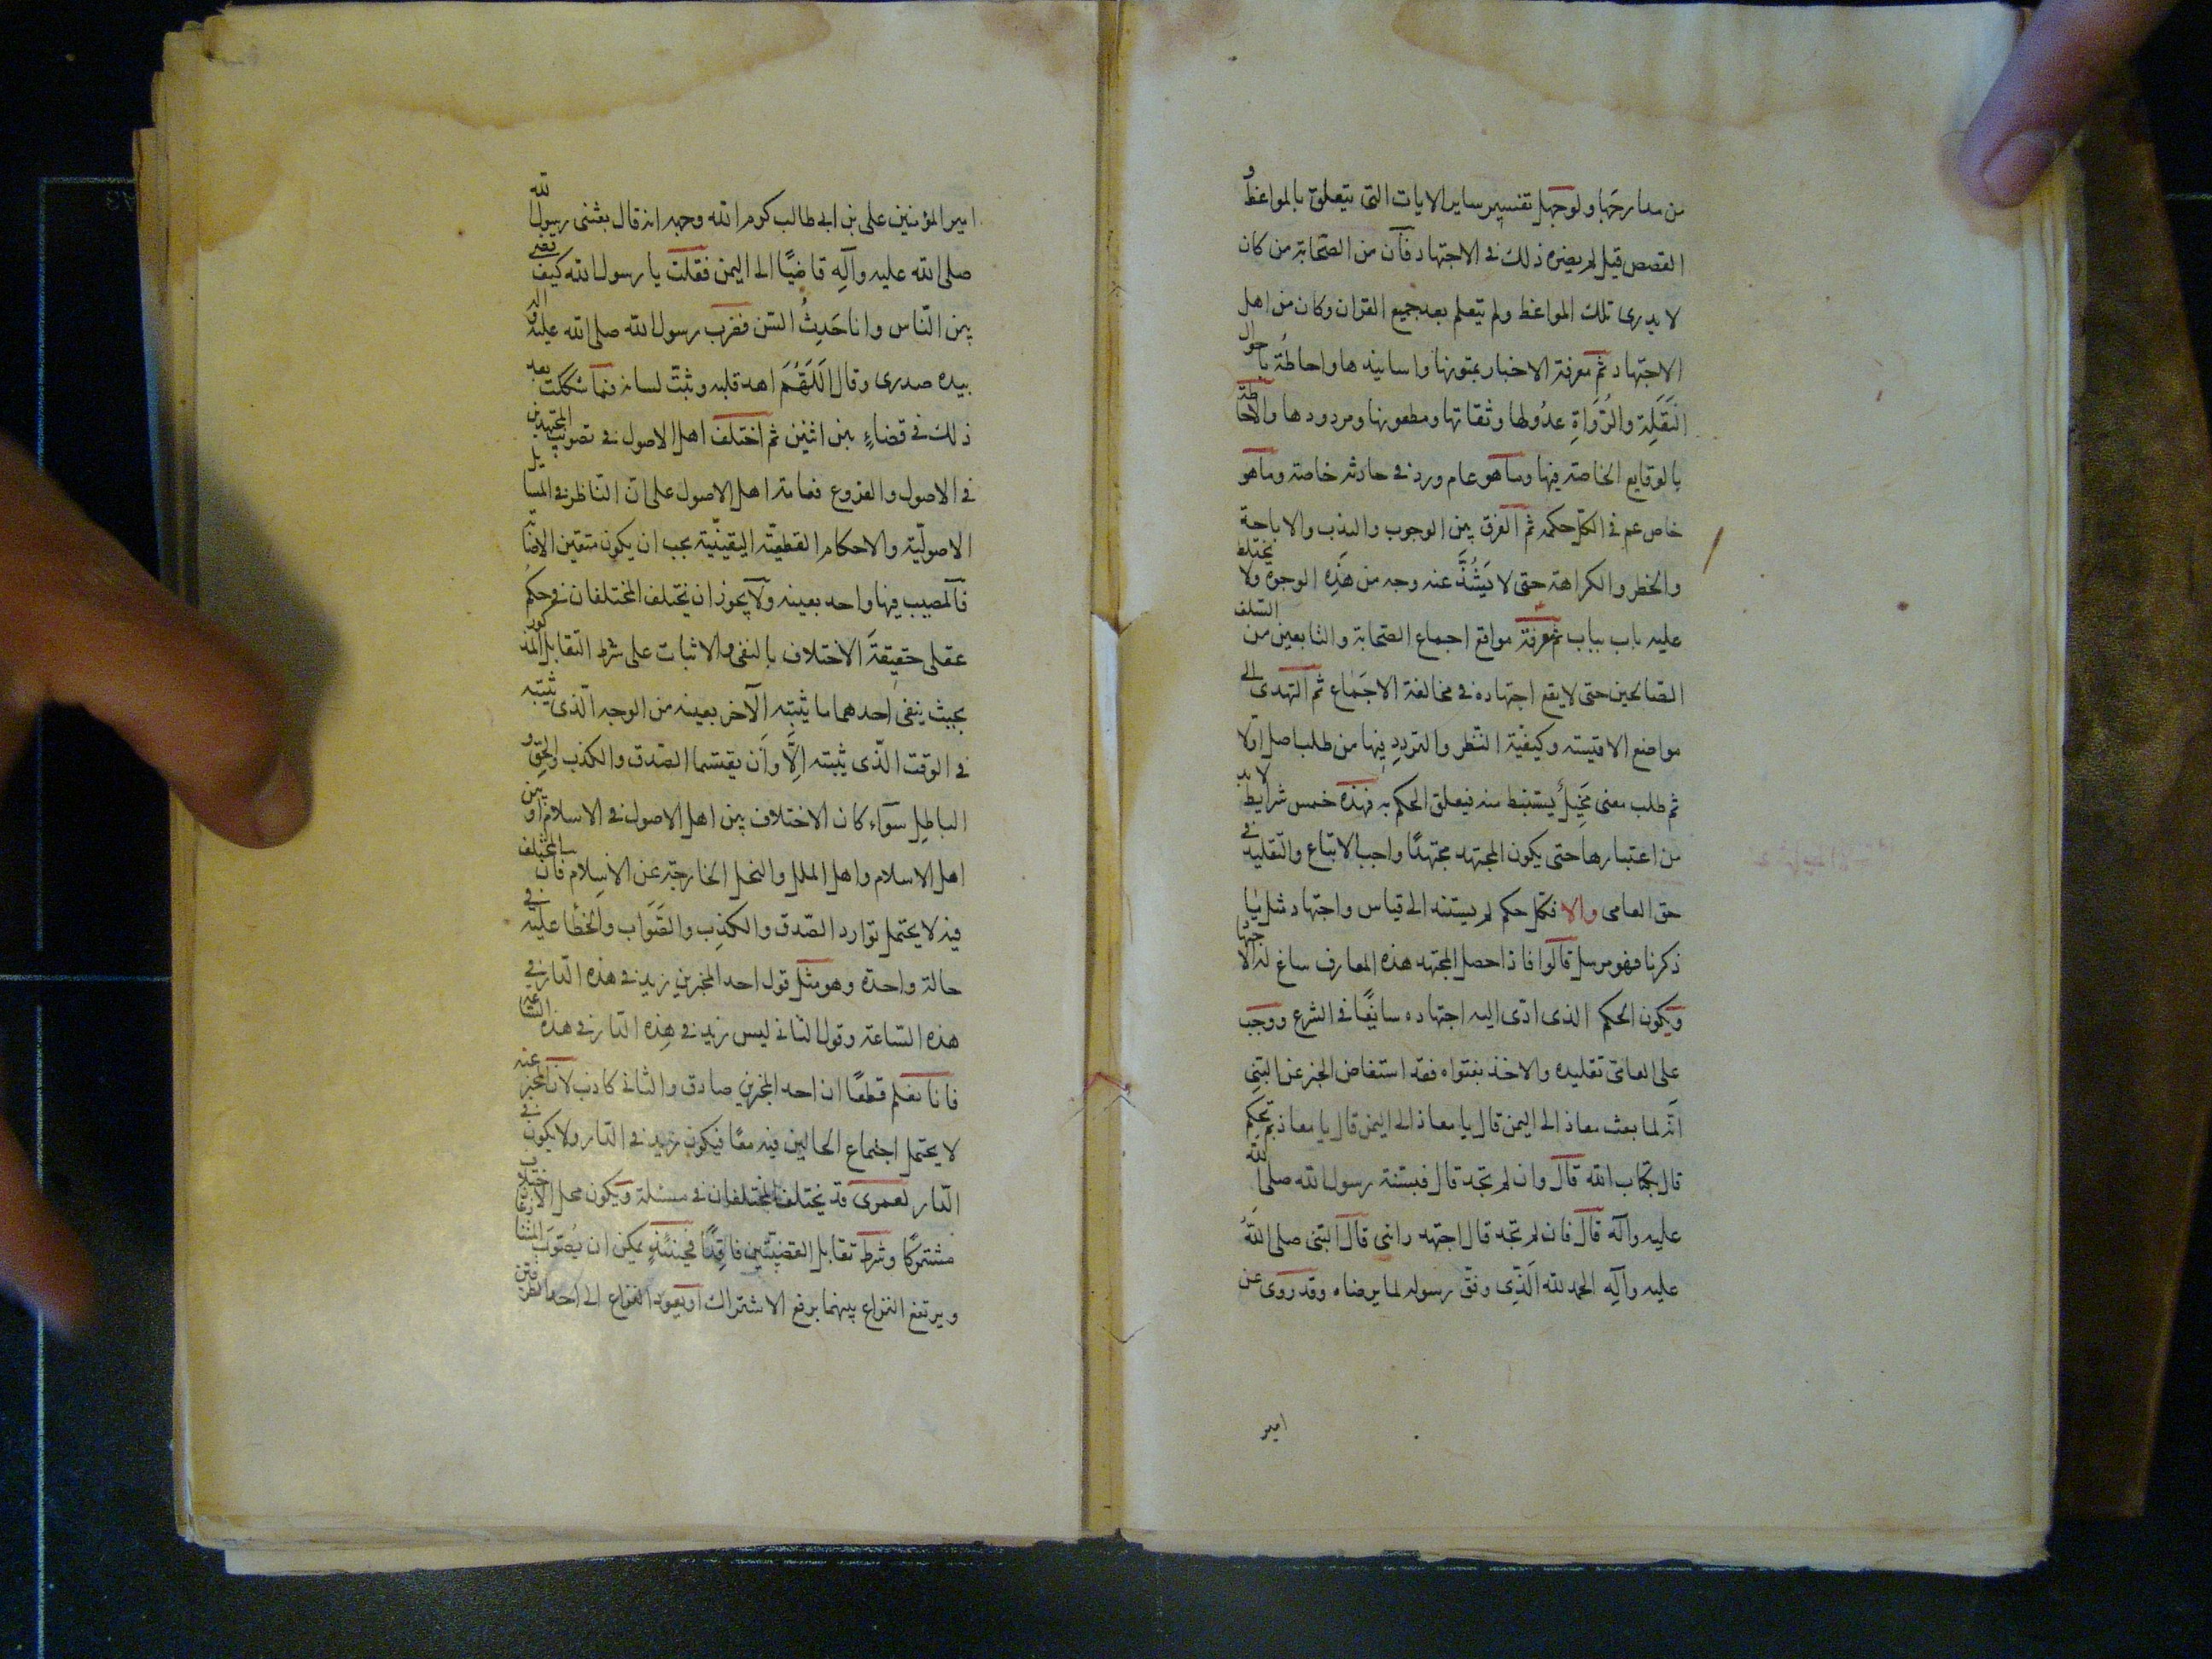 من مدارجها ولو جهل تفسير ساير الايات التى يتعلق بالمواعظ و
القصص قيل لم يضره ذلك فى الاجتهاد فان من الصحابة من كان
لا يدرى تلك المواعظ ولم يتعلم بعد جميع القران وكان من اهل
الاجتهاد ثم معرفة الاخبار بمتونها واسانيدها واحاطة باحوال
النَقَلَة والرُوَاةِ عدُولها وثقاتها ومطعونها ومردودها والاحاطة
بالوقايع الخاصة فيها وما هو عام ورد فى حادثه خاصة وما هو
خاص عم فى الكلّ حكمه ثم الفرق بين الوجوب والندب والاباحة
والخطر والكراهة حتى لا يَشُذَّ عنه وجه من هَذِه الوجوه ولا يختلط
عليه باب بباب ثم معرفة مواقع اجماع الصحابة والتابعين من السّلف
الصّالحين حتى لا يقع اجتهاده فى مخالفة الاجَماع ثم التهدى الى
مواضع الاقيسته وكيفيّة النّظر والتردد فِيها من طلب اصل اولا
ثم طلب معنى مَخِيل يستنبط منه فيعلق الحكم به فهذه خمس شرايط لا بد
من اعتبارها حتى يكون المجتهد مجتهدًا واجب الاتباع والتقليد فى
حق العامى والا فكل حكم لم يستند الى قياس واجتهاد مثل ما
ذكرنا فهو مرسل قالوا فاذا حصل المجتهد هذه المعارف ساغ له الاجتهاد
ويكون الحكم الذى ادّى اليه اجتهاده سايغًا فى الشرع ووجب
على العامّى تقليده والاخذ بفتواه فقد استفاض الخبر عن النبى
انّه لما بعث معاذ الى اليمن قال يا معاذ الى اليمن قال يا معاذ بم تحكم
قال بكتاب الله قال وان لم تجد قال فبسنة رسول الله صلى الله
عليه وآله قال فان لم تجد قال اجتهد رائى قال النبى صلى اللهُ
عليه وآلِه الحمد لله الَذّى وفق رسوله لما يرضاه وقد روى عن
امير
امير المؤمنين على بن ابى طالب كرم الله وجهه انه قال بعثنى رسول الله
صلى الله عليه وآلِه قاضيًا الى اليمن فقلت يا رسول الله كيف اقضى
بين النّاس وانا حَدِيثُ السّن فضرب رسول الله صلى الله عليه واله
بيده صدرى وقال اَللَهُمَ اهد قلبه وثبّت لسانه فما شككت بعد
ذلك فى قضاءٍ بين اثنين ثم اختلف اهل الاصول فى تصويب المجتهدين
فى الاصول والفروع فعامة اهل الاصول على انّ النّاظر فى المسايل
الاصوليّة والاحكام القطعيّة اليقينّية يجب ان يكون متعين الاصابة
فالمصيب فيها واحد بعينه ولا يجوز ان يختلف المختلفان فى حكم
عقلى حقيقَة الاختلاف بالنفى والاثبات على شرط التقابل المذكور
بحيث ينفى احدهما ما يثبته الآخر بعينه من الوجه الّذى يثبته
فى الوقت الذّى يثبته الِّا وَان يقتسما الصّدق والكذب والحق و
الباطِل سوآء كان الاختلاف بين اهل الاصول فى الاسلام او بين
اهل الاسلام واهل الملل والنحل الخارجة عن الاسِلام فان المختلف
فيه لا يحتمل توارد الصّدق والكذِب والصَّوَاب والخطَأ عليه فى
حالة واحدة وهو مثل قول احد المخبرين زيد فى هذه الدّار فى
هذه السّاعة وقول الثانى ليس زيد فى هِذه الدّار فى هذه السّاعة
فانا نعلم قطعًا ان احد المخبرين صادق والثانى كاذب لان المخبر عنه
لا يحتمل اجتماع الحالين فيه معًا فيكون زيد فى الدّار ولا يكون فى
الدّار لعمرى قد يختلف المختلفان فى مسئلة ويكون محل الاختلاف
مشتركًا وشرط تقابل القضيّتين فاقِدًا فحينئذٍ يمكن ان يُصّوَب المتنازعان
ويرتفع النزاع بينهما برفع الاشتراك او يعود النزاع الى احد الطرفين